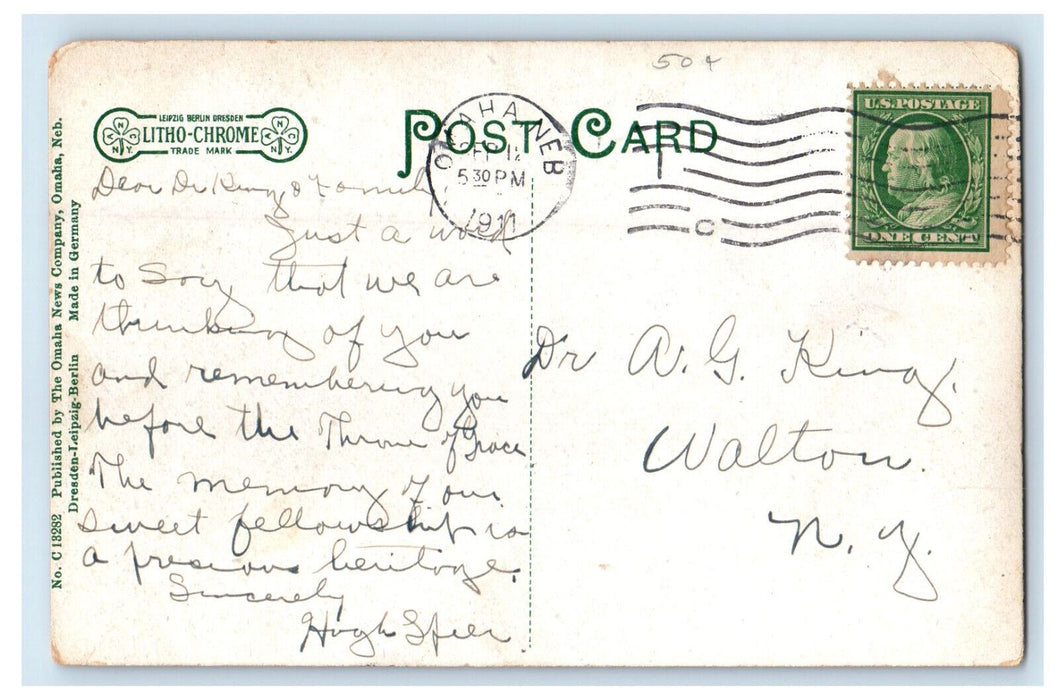 50¢
LEIPZIG BERLIN DRESDEN
LITHO-CHROME
TRADE MARK
N C N.Y.
N C N.Y.
POST CARD
OMAHA NEB
12
5 30 PM
1911
C
U.S. POSTAGE
ONE CENT
No. C 13282 Published by The Omaha News Company, Omaha, Neb.
Dresden-Leipzig-Berlin Made in Germany
Dear Dr King & Family
Just a word
to say that we are
thinking of you
and remembering you
before the Throne of Grace
The memory of our
sweet fellowship is
a precious heritage.
Sincerely
Hugh Speer
Dr A. G. King.
Walton.
N. Y.